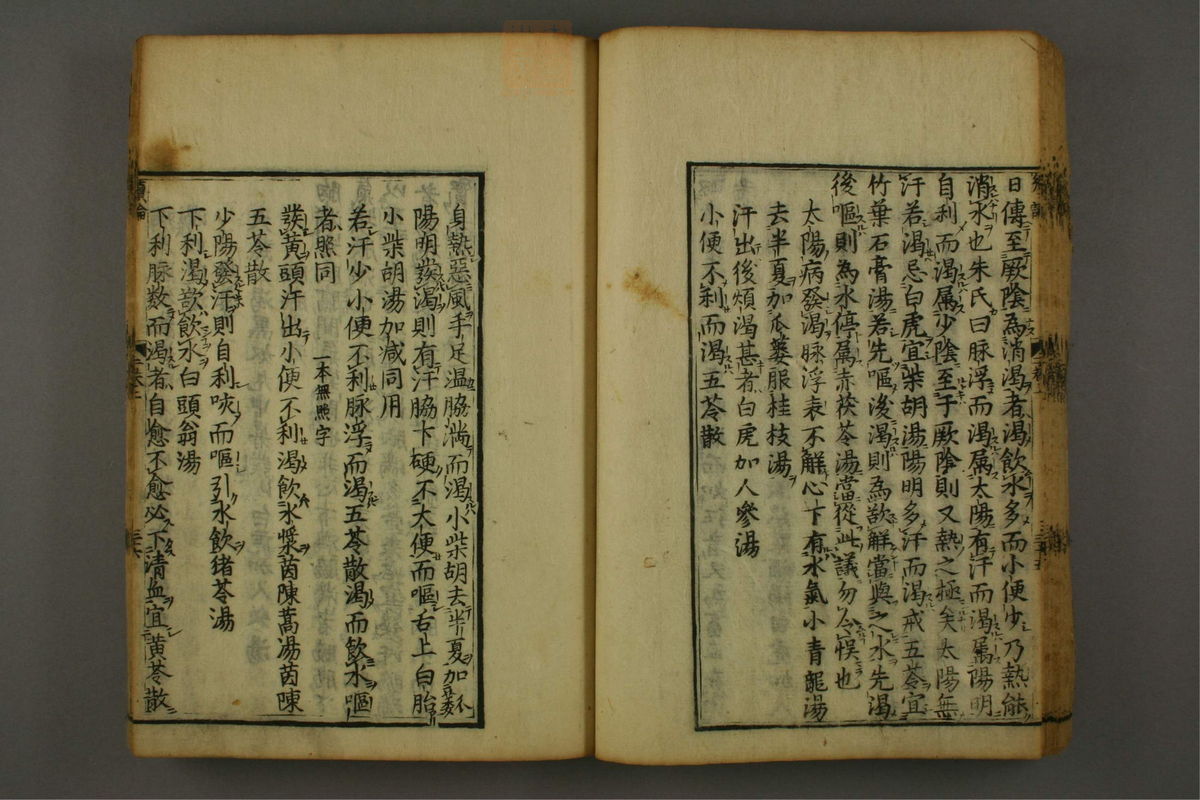 日傳至厥陰為消渴者渴飲水多而小便少乃熱能
消水也朱氏曰脉浮而渴属太陽有汗而渴属陽明
自利而渴属少陰至于厥陰則又熱之極矣太陽無
汗若渴忌白虎宜柴胡湯陽明多汗而渴戒五苓宜
竹葉石膏湯若先嘔後渴則為欲解當與之水先渴
後嘔則為水停属赤茯苓湯當從此議勿令悮也
太陽病發渴脉浮表不解心下有水氣小青龍湯
去半夏加瓜蔞服桂枝湯
汗出後煩渴甚者白虎加人參湯
小便不利而渴五苓散
身熱惡風手足温脇満而渴小柴胡去半夏加瓜蔞
陽明發渴則有汗脇下硬不大便而嘔舌上白胎
小柴胡湯加減同用
若汗少小便不利脉浮而渴五苓散渴而飲水嘔
者熈同 一本無熈字
發黄頭汗出小便不利渴飲水漿茵陳蒿湯茵陳
五苓散
少陽發汗則自利咳而嘔引水飲猪苓湯
下利渴欲飲水白頭翁湯
下利脉数而渴者自愈不愈必下清血宜黄苓散